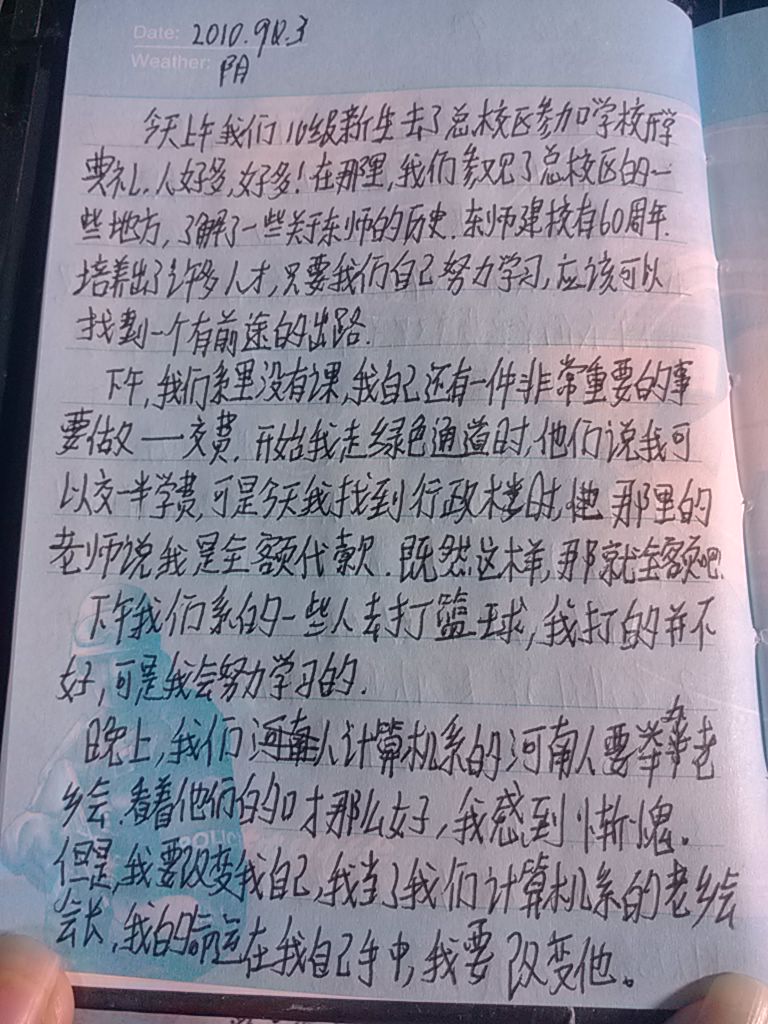 Date: 2010.9.3
Weather: 阴
今天上午我们10级新生去了总校区参加学校开学
典礼.人好多,好多!在那里,我们参观了总校区的一
些地方,了解了一些关于东师的历史.东师建校有60周年.
培养出了许多人才,只要我们自己努力学习,应该可以
找到一个有前途的出路.
下午,我们系里没有课,我自己还有一件非常重要的事
要做——交费.开始我走绿色通道时,他们说我可
以交一半学费,可是今天我找到行政楼时,他那里的
老师说我是全额代款.既然这样,那就全额吧.
下午我们系的一些人去打篮球,我打的并不
好,可是我会努力学习的.
晚上,我们河南人计算机系的河南人要举办老
乡会.看着他们的口才那么好,我感到惭愧。
但是,我要改变我自己,我当了我们计算机系的老乡会
会长,我的命运在我自己手中,我要改变他。
POLIC